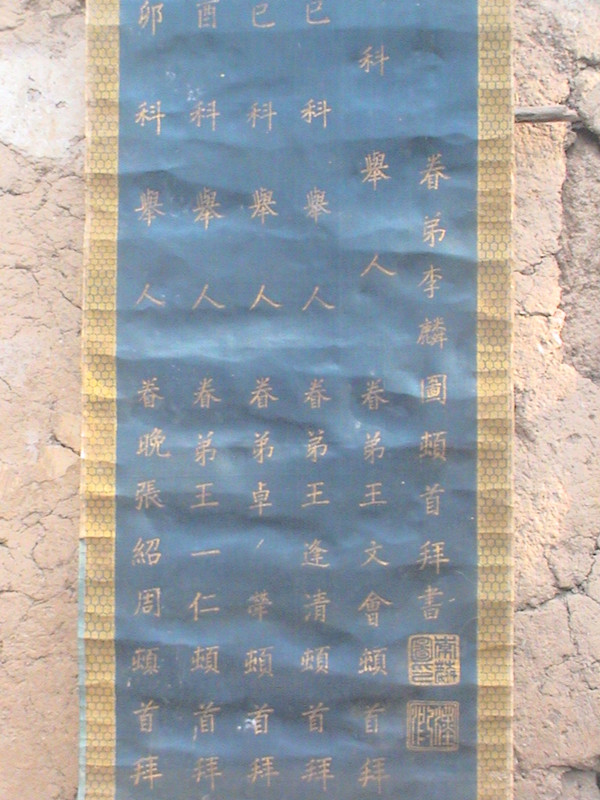 眷弟李麟圖頓首拜書
科舉人眷弟王文會頓首拜
巳科舉人眷弟王逢清頓首拜
巳科舉人眷弟卓帶頓首拜
酉科舉人眷弟王一仁頓首拜
卯科舉人眷晚張紹周頓首拜